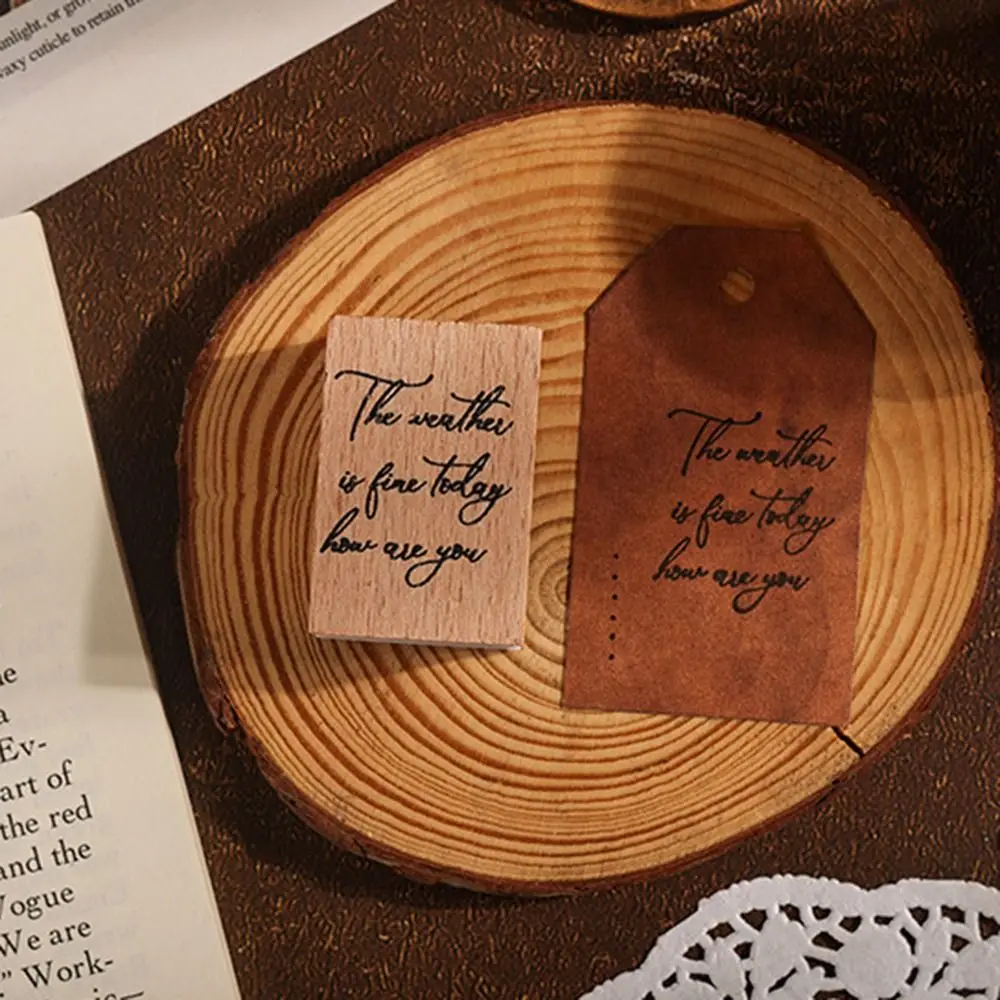 unlight, or gro
waxy cuticle to retain th
The weather
is fine today
how are you
The weather
is fine today
how are you
a
Ev-
art of
the red
and the
Vogue
We are
" Work-